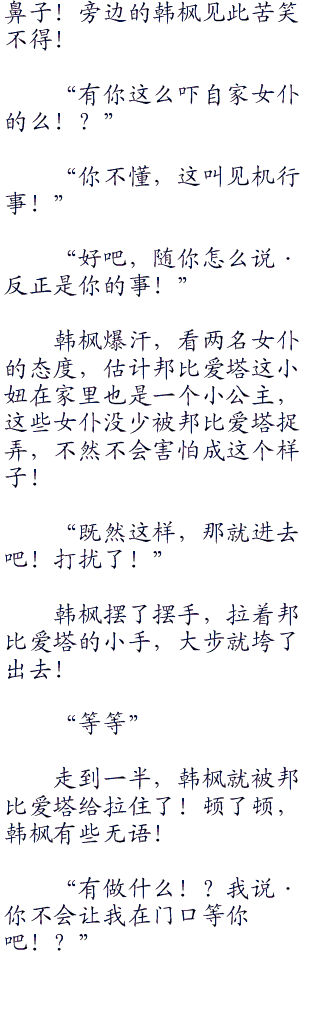 鼻子！旁边的韩枫见此苦笑
不得！
“有你这么吓自家女仆
的么！？”
“你不懂，这叫见机行
事！”
“好吧，随你怎么说·
反正是你的事！”
韩枫爆汗，看两名女仆
的态度，估计邦比爱塔这小
妞在家里也是一个小公主，
这些女仆没少被邦比爱塔捉
弄，不然不会害怕成这个样
子！
“既然这样，那就进去
吧！打扰了！”
韩枫摆了摆手，拉着邦
比爱塔的小手，大步就垮了
出去！
“等等”
走到一半，韩枫就被邦
比爱塔给拉住了！顿了顿，
韩枫有些无语！
“有做什么！？我说·
你不会让我在门口等你
吧！？”